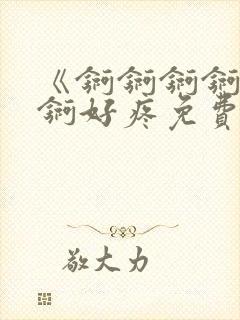 《锕锕锕锕
锕好疼免費
敬大力